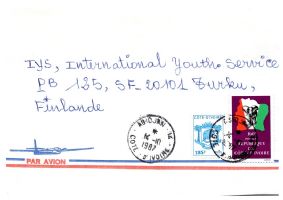 IYS, International Youth Service
PB 125, SF-20101 Turku,
Finlande
COTE D'IVOIRE
155F
REPUBLIQUE
DE COTE D'IVOIRE
ABIDJAN
1987
COTE D'IVOIRE
PAR AVION